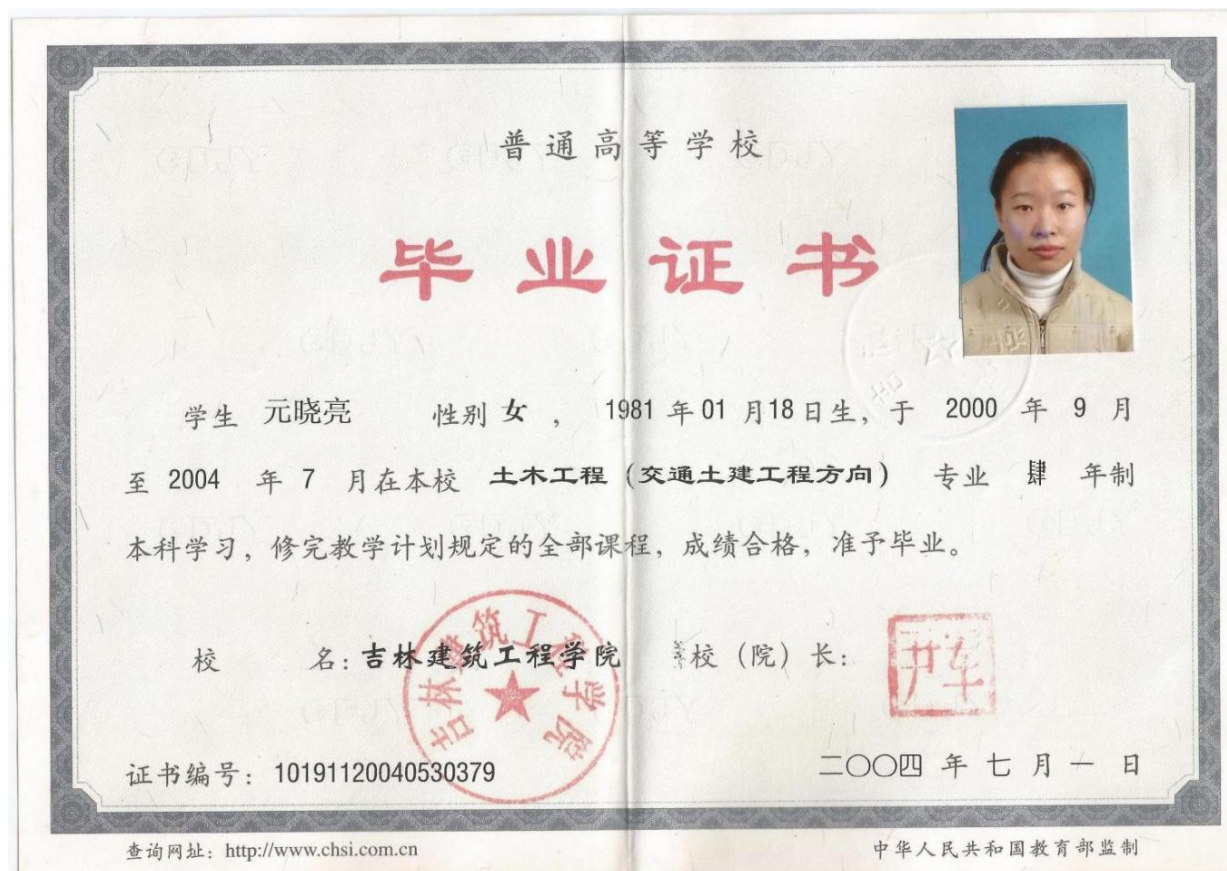 普通高等学校
毕业证书
学生 元晓亮 性别 女 , 1981 年 01 月 18 日生, 于 2000 年 9 月
至 2004 年 7 月在本校 土木工程（交通土建工程方向） 专业 肆 年制
本科学习, 修完教学计划规定的全部课程, 成绩合格, 准予毕业。
校 名: 吉林建筑工程学院 校（院）长:
吉林建筑工程学院
证书编号: 10191120040530379 二〇〇四 年 七 月 一 日
查询网址: http://www.chsi.com.cn 中华人民共和国教育部监制